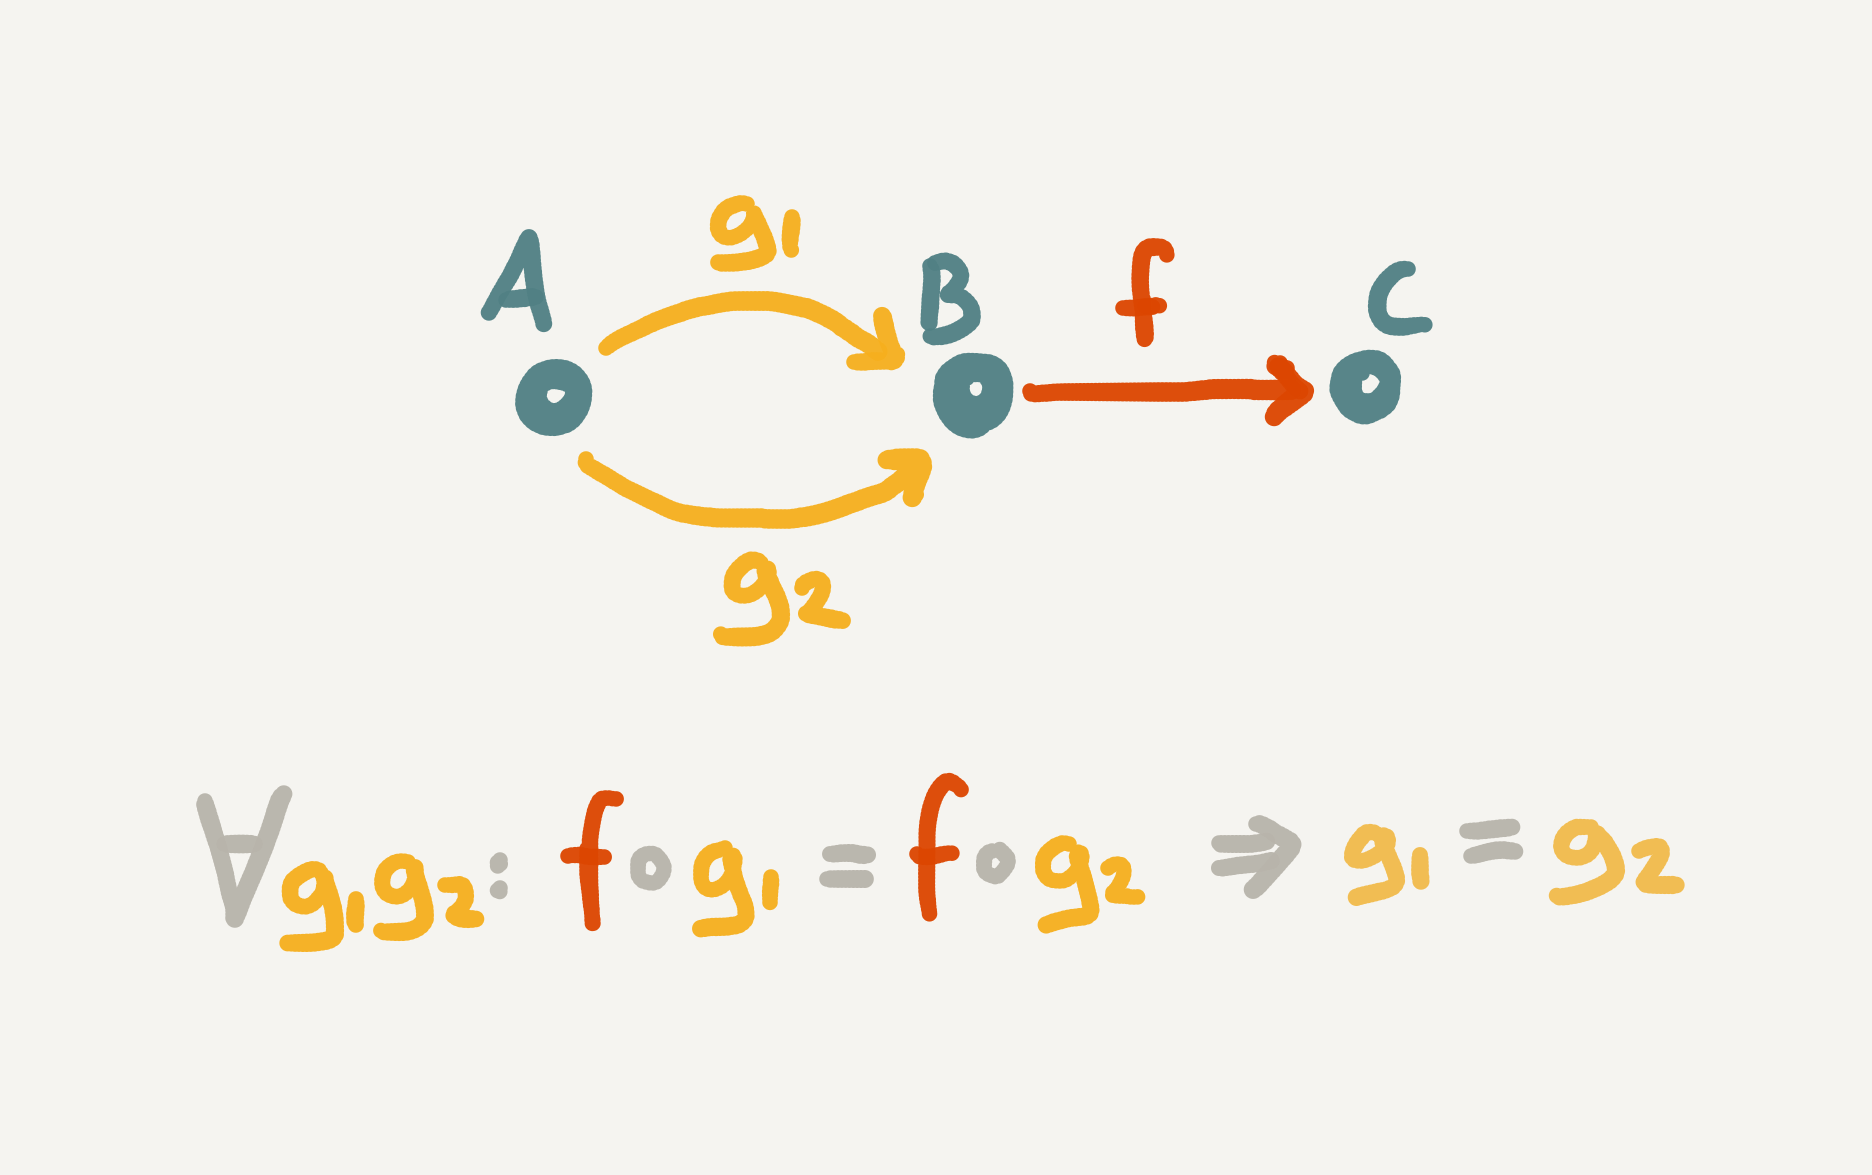 g1
A B f C
g2
∀g1g2: f∘g1 = f∘g2 ⇒ g1 = g2